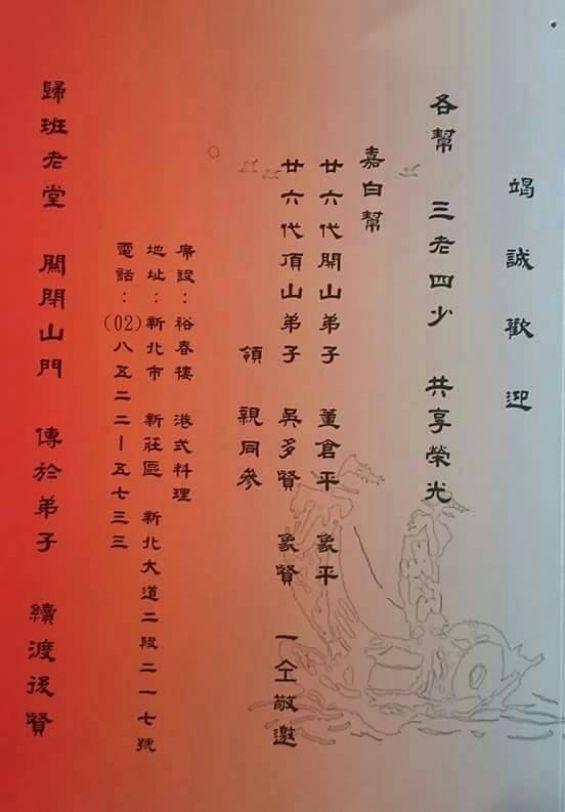 竭誠歡迎
各幫 三老四少 共享榮光
嘉白幫
廿六代開山弟子 董倉平 象平
廿六代頂山弟子 吳多賢 象賢 一仝敬邀
領 親同參
席設：裕春樓 港式料理
地址：新北市 新莊區 新北大道二段二一七號
電話：(02)八五二二－五七三三
歸班老堂 關閉山門 傳於弟子 續渡後賢